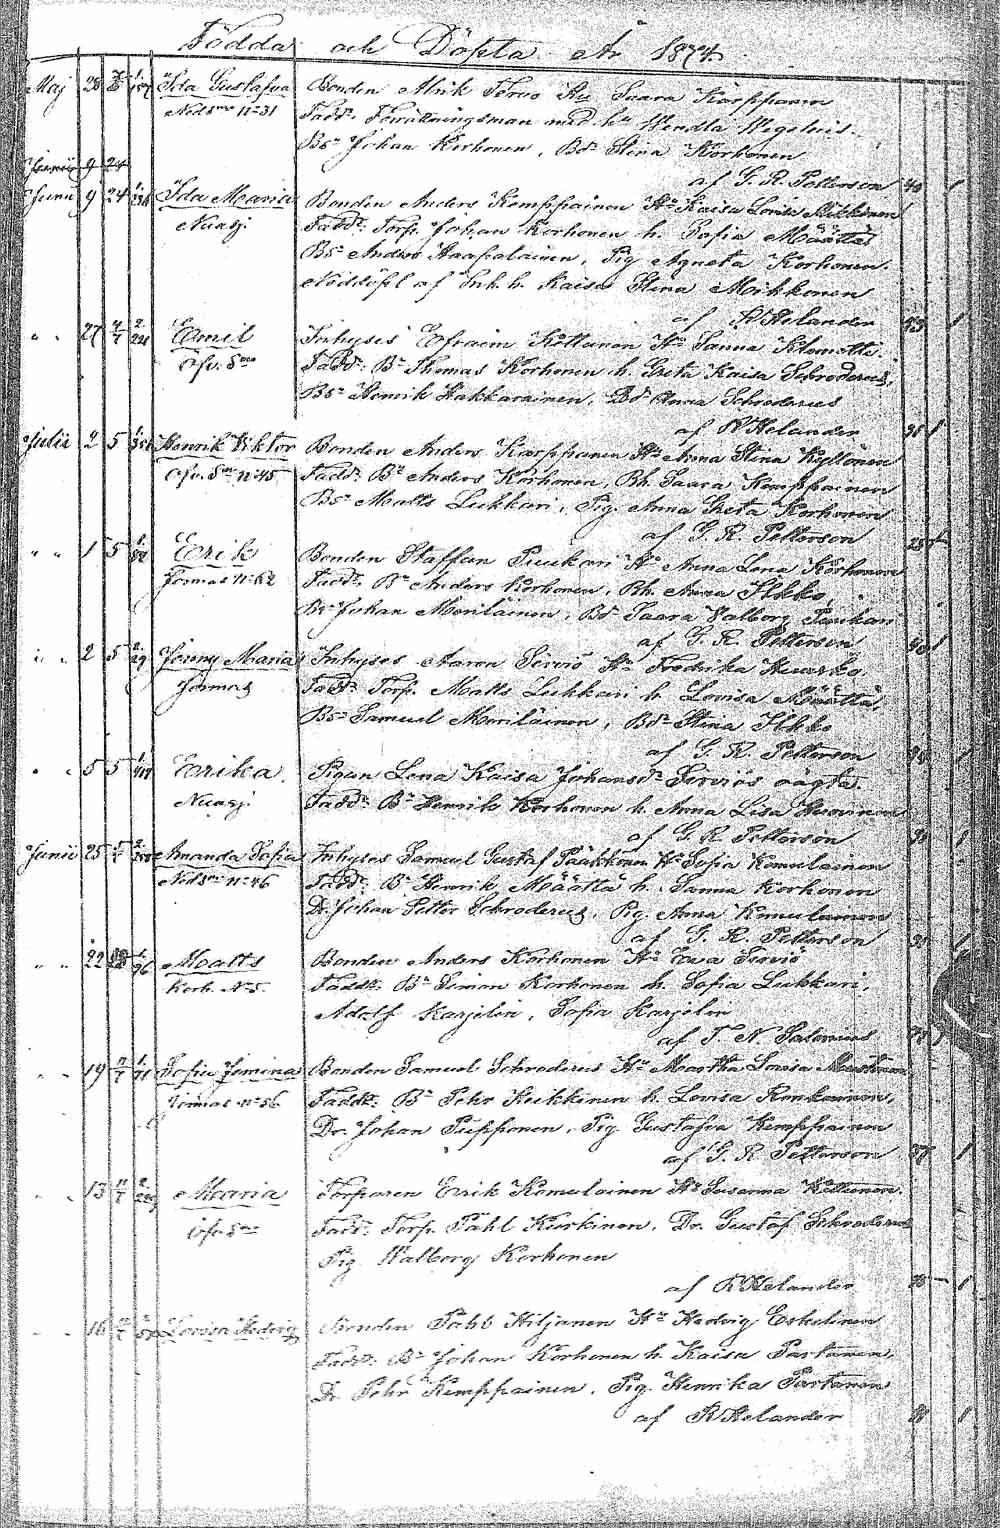 Födda och Döpta År 1874.
Maj 28 Ida Gustafva Bonden Alrik Tervo Hu Saara Karppanen
Nedsmo No 31 Fadd: Förrättningsman med hu Hendla Wegelius.
Bs Johan Korhonen, Bd Stina Korhonen
Junii 9 24
af G. R. Petterson 40 1
Junii 9 24 Ida Maria Bonden Anders Kemppainen Hu Kaisa Lovisa Mikkonen
Nuasj. Fadd: Torp. Johan Korhonen h. Sofia Määttä
Bs Anders Haapalainen, Pig Agneta Korhonen.
Nöddöpt af Inh. h. Kaisa Stina Mikkonen
af R Helander 43 1
" " 27 4/7 Emil Inhyses Efraim Kettunen Hu Sanna Klemetti
Ofv. Smo Fadd: Bn Thomas Korhonen h. Greta Kaisa Schroderus,
Bs Henrik Hakkarainen, Bd Anna Schroderus
af R Helander 1
Julii 2 5 Henrik Viktor Bonden Anders Karppanen Hu Anna Stina Kyllönen
Ofv. Smo No 45 Fadd: Bn Anders Korhonen, Bh. Saara Kemppainen
Bs Matts Lukkari, Pig. Anna Greta Korhonen
af G. R. Petterson 28
" " 1 5 Erik Bonden Staffan Puukari Hu Anna Lena Korhonen
Jormas No 62 Fadd: Bn Anders Korhonen, Bh. Anna Ilkko,
Bs Johan Meriläinen, Bd Saara Valborg Puukari
af G. R. Petterson 1
" " 2 5 Jenny Maria Inhyses Aaron Serviö Hu Fredrika Huusko.
Jormas Fadd: Torp. Matts Lukkari h. Lovisa Määttä
Bs Samuel Meriläinen, Bd Stina Ilkko
af G. R. Petterson 1
" " 5 5 Erika. Pigan Lena Kaisa Johansdr Serviös oägta.
Nuasj. Fadd: Bn Henrik Korhonen h. Anna Lisa Huovinen
af G. R. Petterson 1
Junii 25 5/7 Amanda Sofia Inhyses Samuel Gustaf Pääkkönen Hu Sofia Komulainen
Nedsmo No 46 Fadd: Bn Henrik Määttä h. Sanna Korhonen
Dr. Johan Petter Schroderus, Pig. Anna Komulainen
af G. R. Petterson
" " 22 Matts Bonden Anders Korhonen Hu Eva Serviö
Korh. No 5. Fadd: Bn Simon Korhonen h. Sofia Lukkari,
Adolf Karjelin, Sofia Karjelin
af T. N. Salenius
" " 19 11/7 Sofia Jemina Bonden Samuel Schroderus Hu Martha Lovisa Mustonen
Jormas No 56 Fadd: Bn Pehr Keikkinen h. Lovisa Ronkainen,
Dr. Johan Piipponen, Pig. Gustafva Kemppainen
af G. R. Petterson 1
" " 13 11/7 Maria Torparen Erik Komulainen Hu Susanna Kettunen.
Ofv. Smo Fadd: Torp. Påhl Kurkinen, Dr. Gustaf Schroderus
Pig Walborg Korhonen
af R Helander 1
" " 16 11/7 Lovisa Hedvig Bonden Påhl Hiljanen Hu Hedvig Eskelinen
Fadd: Bn Johan Korhonen h. Kaisa Partanen,
Dr Pehr Kemppainen, Pig. Henrika Partanen
af R Helander 1